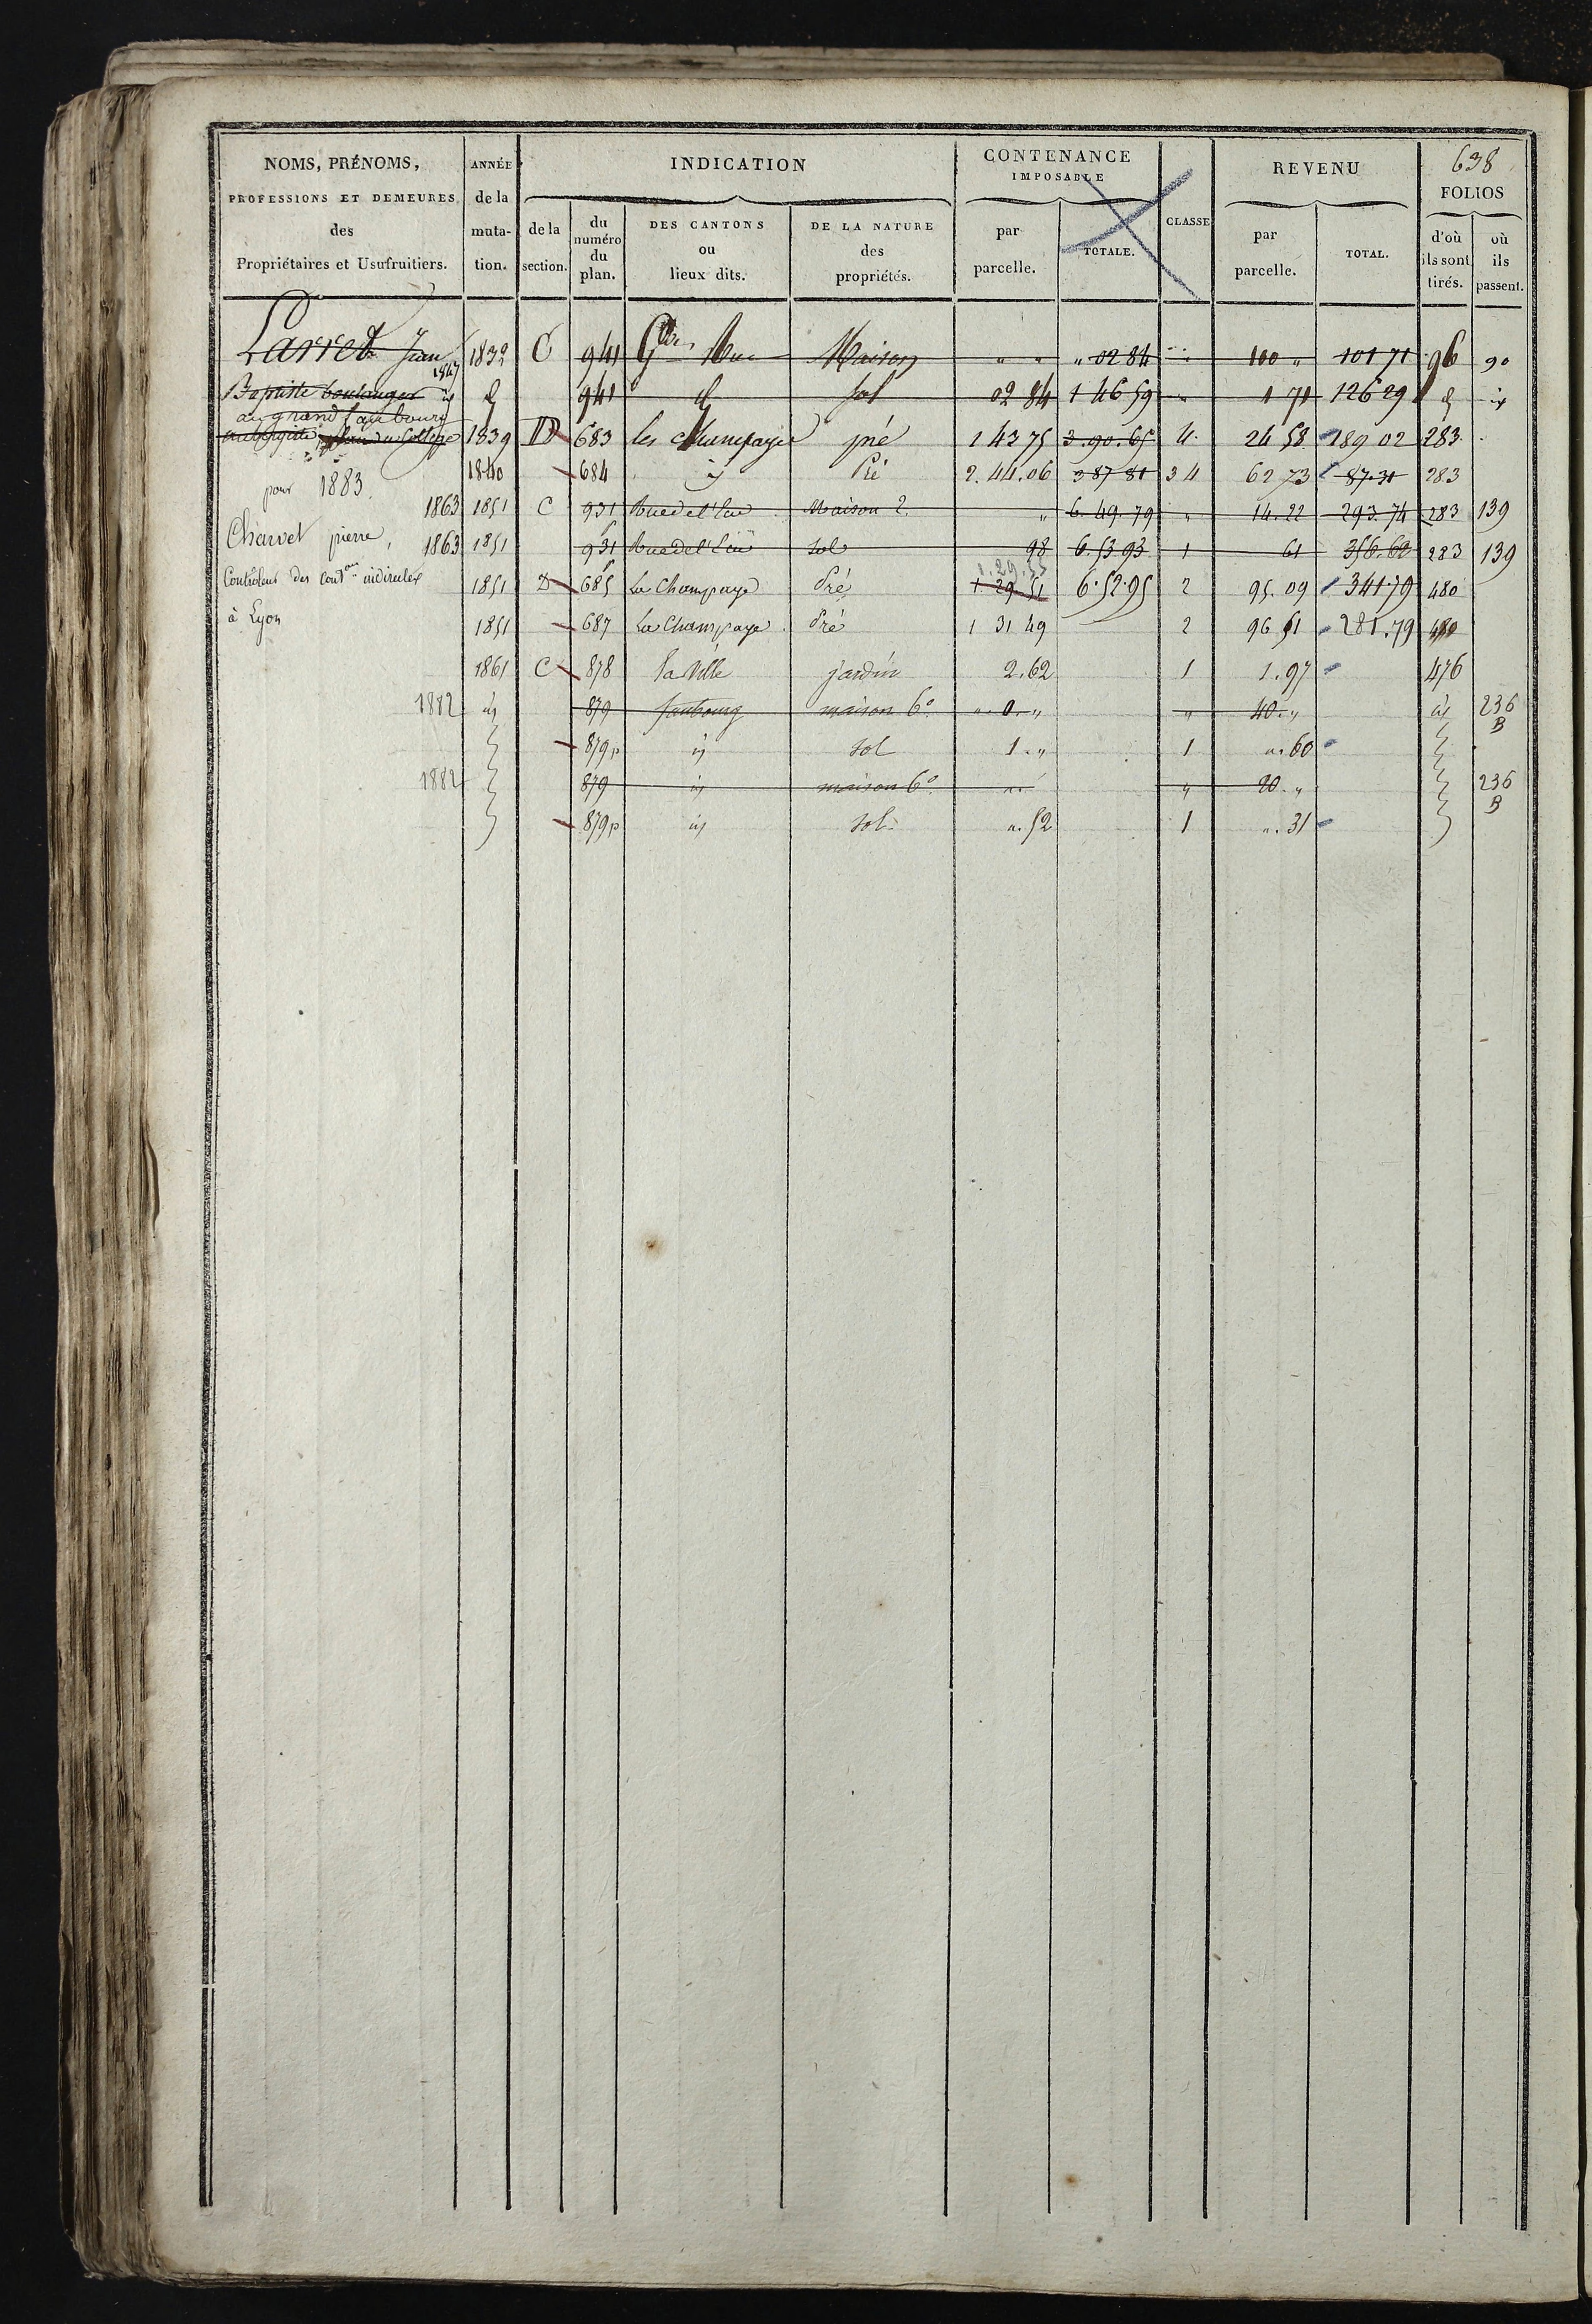 638
NOMS, PRÉNOMS, PROFESSIONS ET DEMEURES des Propriétaires et Usufruitiers.
ANNÉE de la muta- tion.
INDICATION
de la section.
du numéro du plan.
DES CANTONS ou lieux dits.
DE LA NATURE des propriétés.
CONTENANCE IMPOSABLE
par parcelle.
TOTALE.
CLASSE
REVENU
par parcelle.
TOTAL.
FOLIOS
d'où ils sont tirés.
où ils passent.
Larret Jean 1832 C 941 Gde Rue Maison " " " 02 84 " 100 " 101 71 96 90
1847
Baptiste boulanger id 941 d sol 02 84 1 46 59 " 1 71 126 29 d id
au grand faubourg
place du College 1839 D 683 les Champagnes pré 1 43 75 3.90.65 4. 24 58 189 02 283
1840 684 id Pré 2.44.06 3 87 81 3 4 62 73 87.31 283
pour 1883.
1863 1851 C 931 Rue de l'Eau Maison 2. " 6.49.79 " 14.22 293.74 283 139
Charvet pierre, 1863 1851 931 Rue de l'Eau Sol 98 6.53 93 1 61 356.60 283 139
1.29.55
Contrôleur des Contons indirectes 1851 D 685 La Champagne Pré 1.29 51 6.52.95 2 95.09 341.79 480
à Lyon 1851 687 La Champagne Pré 1 31 49 2 96 51 281.79 480
1861 C 878 la Ville jardin 2.62 1 1.97 476
1882 id 879 faubourg maison 6e ". 0. " " 40. " id 236 B
879p id sol 1. " 1 ". 60
1882 879 id maison 6e " " 20. " 236 B
879p id sol ". 52 1 ". 31